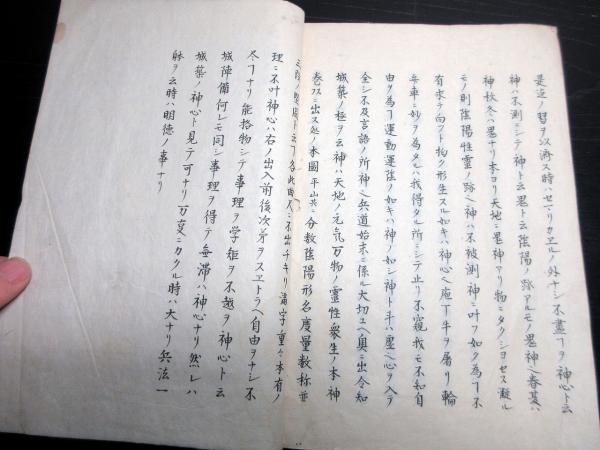 是迄ノ習ヲ以済ス時ハセハリカヱルノ外ナシ不盡フヲ神心ト云
神ハ不測ニシテ神ト云君ト云陰陽ノ跡アルモノ鬼神ハ春夏ハ
神秋冬ハ鬼ナリ本ヨリ天地ニ鬼神アリ物ニタクシヨセス凝ル
モノ則陰陽性霊ノ跡ハ神ハ不被測神ニ叶フ如ク為フ不
有求テ向フト拘ク形生スル如キハ神心ハ庖丁牛ヲ屠リ輪
兵車ニ妙ヲ為タルハ我得タル所ニシテ止リ不窺我モ不知自
由ヲ為フ運動運陰ノ如キハ神ノ如シ神ト斗ハ聖心ヲ入ラ
全シ不及言語ノ所神ハ兵道始末ニ係ル大切ユヘ奥ニ出令知
城築ノ極ヲ云神ハ天地ノ元気万物ノ霊性衆生ノ本神
巻フスニ出ス処ノ本圖平山共ニ分数陰陽形名度量数称並
ニ不出チキリ満字重々本有ノ
理ニ不叶神心ハ右ノ出入前後次第ヲスヱトラヘ自由ヲナシ不
尽フナリ能格物シテ事理ヲ学矩ヲ不越ヲ神心ト云
城陣備何レモ同シ事理ヲ得テ毎滞ハ神心ナリ然レハ
城築ノ神心ト見テ可ナリ万変ニカクル時ハ大ナリ兵法一
躰ヲ云時ハ明徳ノ事ナリ